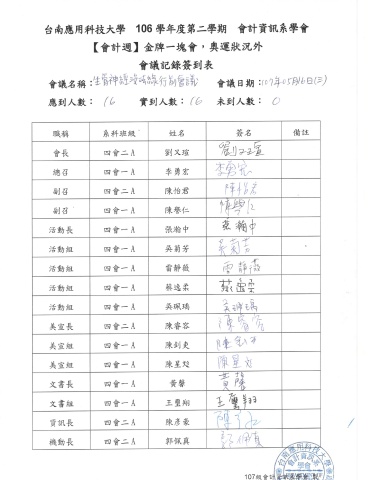 台南應用科技大學 106 學年度第二學期 會計資訊系學會
【會計週】金牌一塊會,奧運狀況外
會議記錄簽到表
會議名稱: 會議日期:107年05月16日(三)
應到人數:16 實到人數:16 未到人數:0
職稱 系科班級 姓名 簽名 備註
會長 四會二A 劉又瑄 劉又瑄
總召 四會一A 李勇宏 李勇宏
副召 四會二A 陳怡君 陳怡君
副召 四會一A 陳譽仁 陳譽仁
活動長 四會一A 張瀚中 張瀚中
活動組 四會一A 吳菊芳 吳菊芳
活動組 四會一A 雷靜薇 雷靜薇
活動組 四會一A 蔡逸柔
活動組 四會一A 吳珮瑀 吳珮瑀
美宣長 四會二A 陳睿容 陳睿容
美宣組 四會一A 陳釗奕
美宣組 四會一A 陳星彣 陳星彣
文書長 四會一A 黃馨 黃馨
文書組 四會一A 王璽翔 王璽翔
資訊長 四會二A 陳彥豪
機動長 四會二A 郭佩真 郭佩真
台南應用科技大學
會計資訊系
學會
107級會計資訊系學會 製